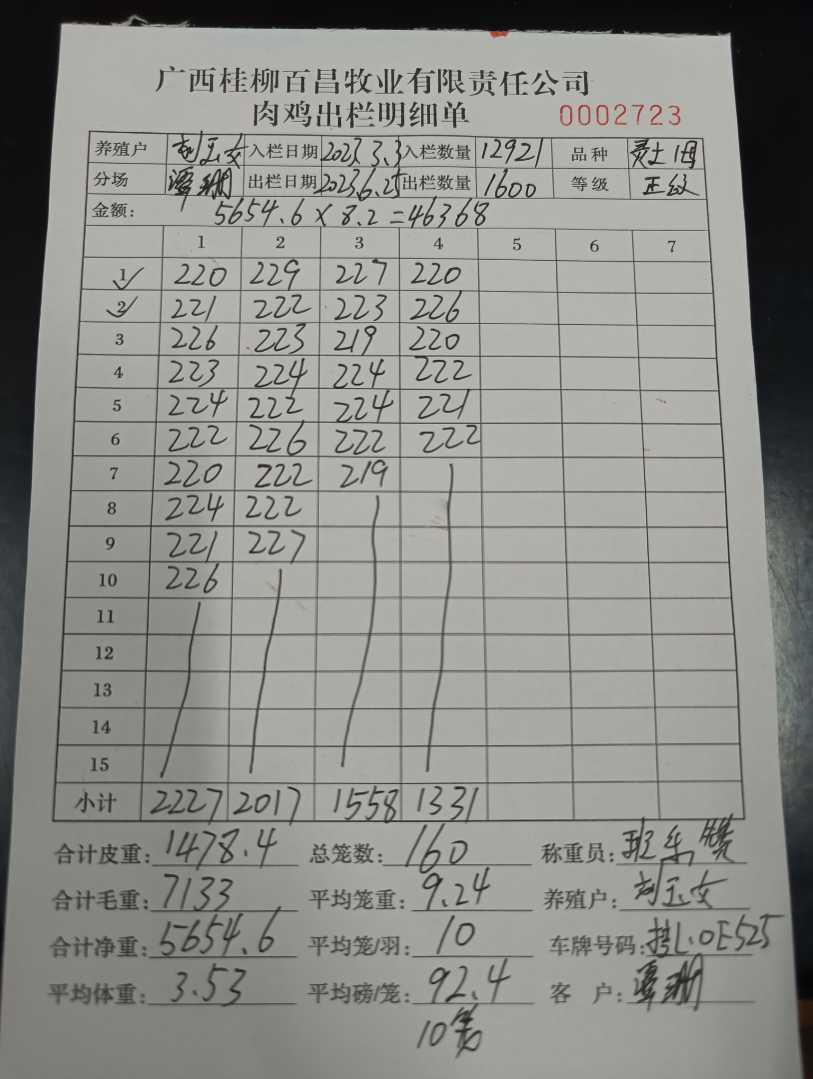 广西桂柳百昌牧业有限责任公司
肉鸡出栏明细单 0002723
养殖户 刘玉女 入栏日期 2023.3.3 入栏数量 12921 品种 灵土1母
分场 谭珊 出栏日期 2023.6.25 出栏数量 1600 等级 正纹
金额: 5654.6 × 8.2 =46368
1 2 3 4 5 6 7
1 220 229 227 220
2 221 222 223 226
3 226 223 219 220
4 223 224 224 222
5 224 222 224 221
6 222 226 222 222
7 220 222 219
8 224 222
9 221 227
10 226
11
12
13
14
15
小计 2227 2017 1558 1331
合计皮重: 1478.4 总笼数: 160 称重员: 班
合计毛重: 7133 平均笼重: 9.24 养殖户: 刘玉女
合计净重: 5654.6 平均笼/羽: 10 车牌号码: L·0E525
平均体重: 3.53 平均磅/笼: 92.4 客 户: 谭珊
10笼